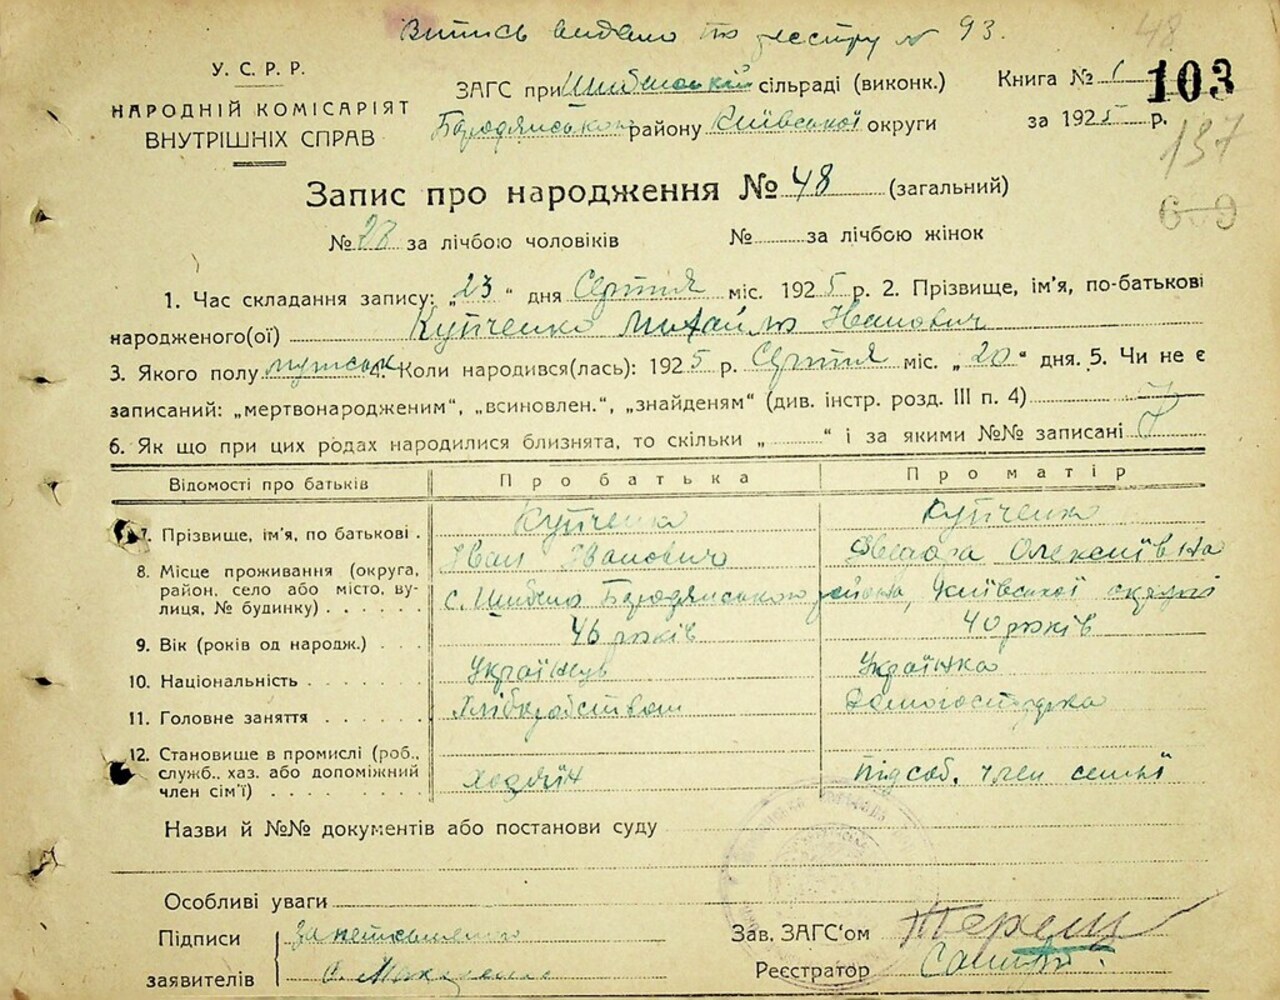 Витись видано по реєстру № 93.
48
У. С. Р. Р.
НАРОДНІЙ КОМІСАРІЯТ
ВНУТРІШНІХ СПРАВ
ЗАГС при сільраді (виконк.)
Бородянського району Київської округи
Книга № 1
103
за 1925 р.
137
Запис про народження № 48 (загальний)
№ 28 за лічбою чоловіків № за лічбою жінок
1. Час складання запису: „23“ дня Серпня міс. 1925 р. 2. Прізвище, ім'я, по-батькові
народженого(ої) Купченко Михайло Іванович
3. Якого полу 4. Коли народився(лась): 1925 р. Серпня міс. „20“ дня. 5. Чи не є
записаний: „мертвонародженим“, „всиновлен.“, „знайденям“ (див. інстр. розд. III п. 4)
6. Як що при цих родах народилися близнята, то скільки „ “ і за якими №№ записані
Відомості про батьків Про батька Про матір
7. Прізвище, ім'я, по батькові . Купченко Купченко
Іван Іванович Олексіївна
8. Місце проживання (округа, район, село або місто, вулиця, № будинку) . . . . . с. Шибено Бородянського району, Київської округи
9. Вік (років од народж.) . . . 46 років 40 років
10. Національність . . . . . . . Українць Українка
11. Головне заняття . . . . . . Хлібробством Домогосподарка
12. Становище в промислі (роб., служб., хаз. або допоміжний член сім'ї) . . . . . . . . хозяїн підсоб. член семьї
Назви й №№ документів або постанови суду
Особливі уваги
Підписи
заявителів
Зав. ЗАГС'ом
Реєстратор